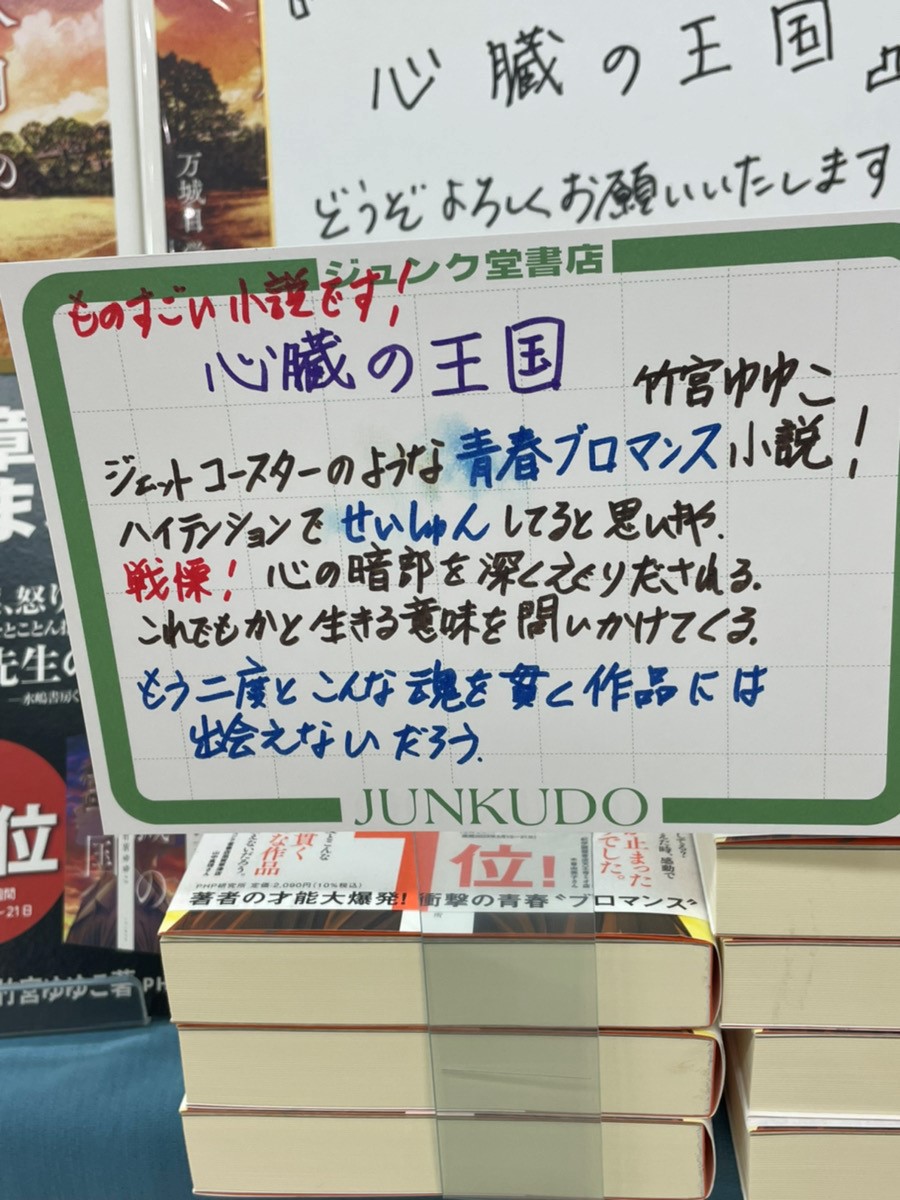 『
心臓の王国』
どうぞよろしくお願いいたします
万城目学
の
ジュンク堂書店
ものすごい小説です!
心臓の王国
竹宮ゆゆこ
ジェットコースターのような青春ブロマンス小説!
ハイテンションでせいしゅんしてると思いきや、
戦慄! 心の暗部を深くえぐりだされる。
これでもかと生きる意味を問いかけてくる。
もう二度とこんな魂を貫く作品には
出会えないだろう。
JUNKUDO
章
ま
、怒り
とことん
先生の
位
~21日
竹宮ゆゆこ著 PH
貫く
な作品
位!
止まった
でした。
PHP研究所 定価2,090円(10%税込)
著者の才能大爆発! 衝撃の青春“ブロマンス”